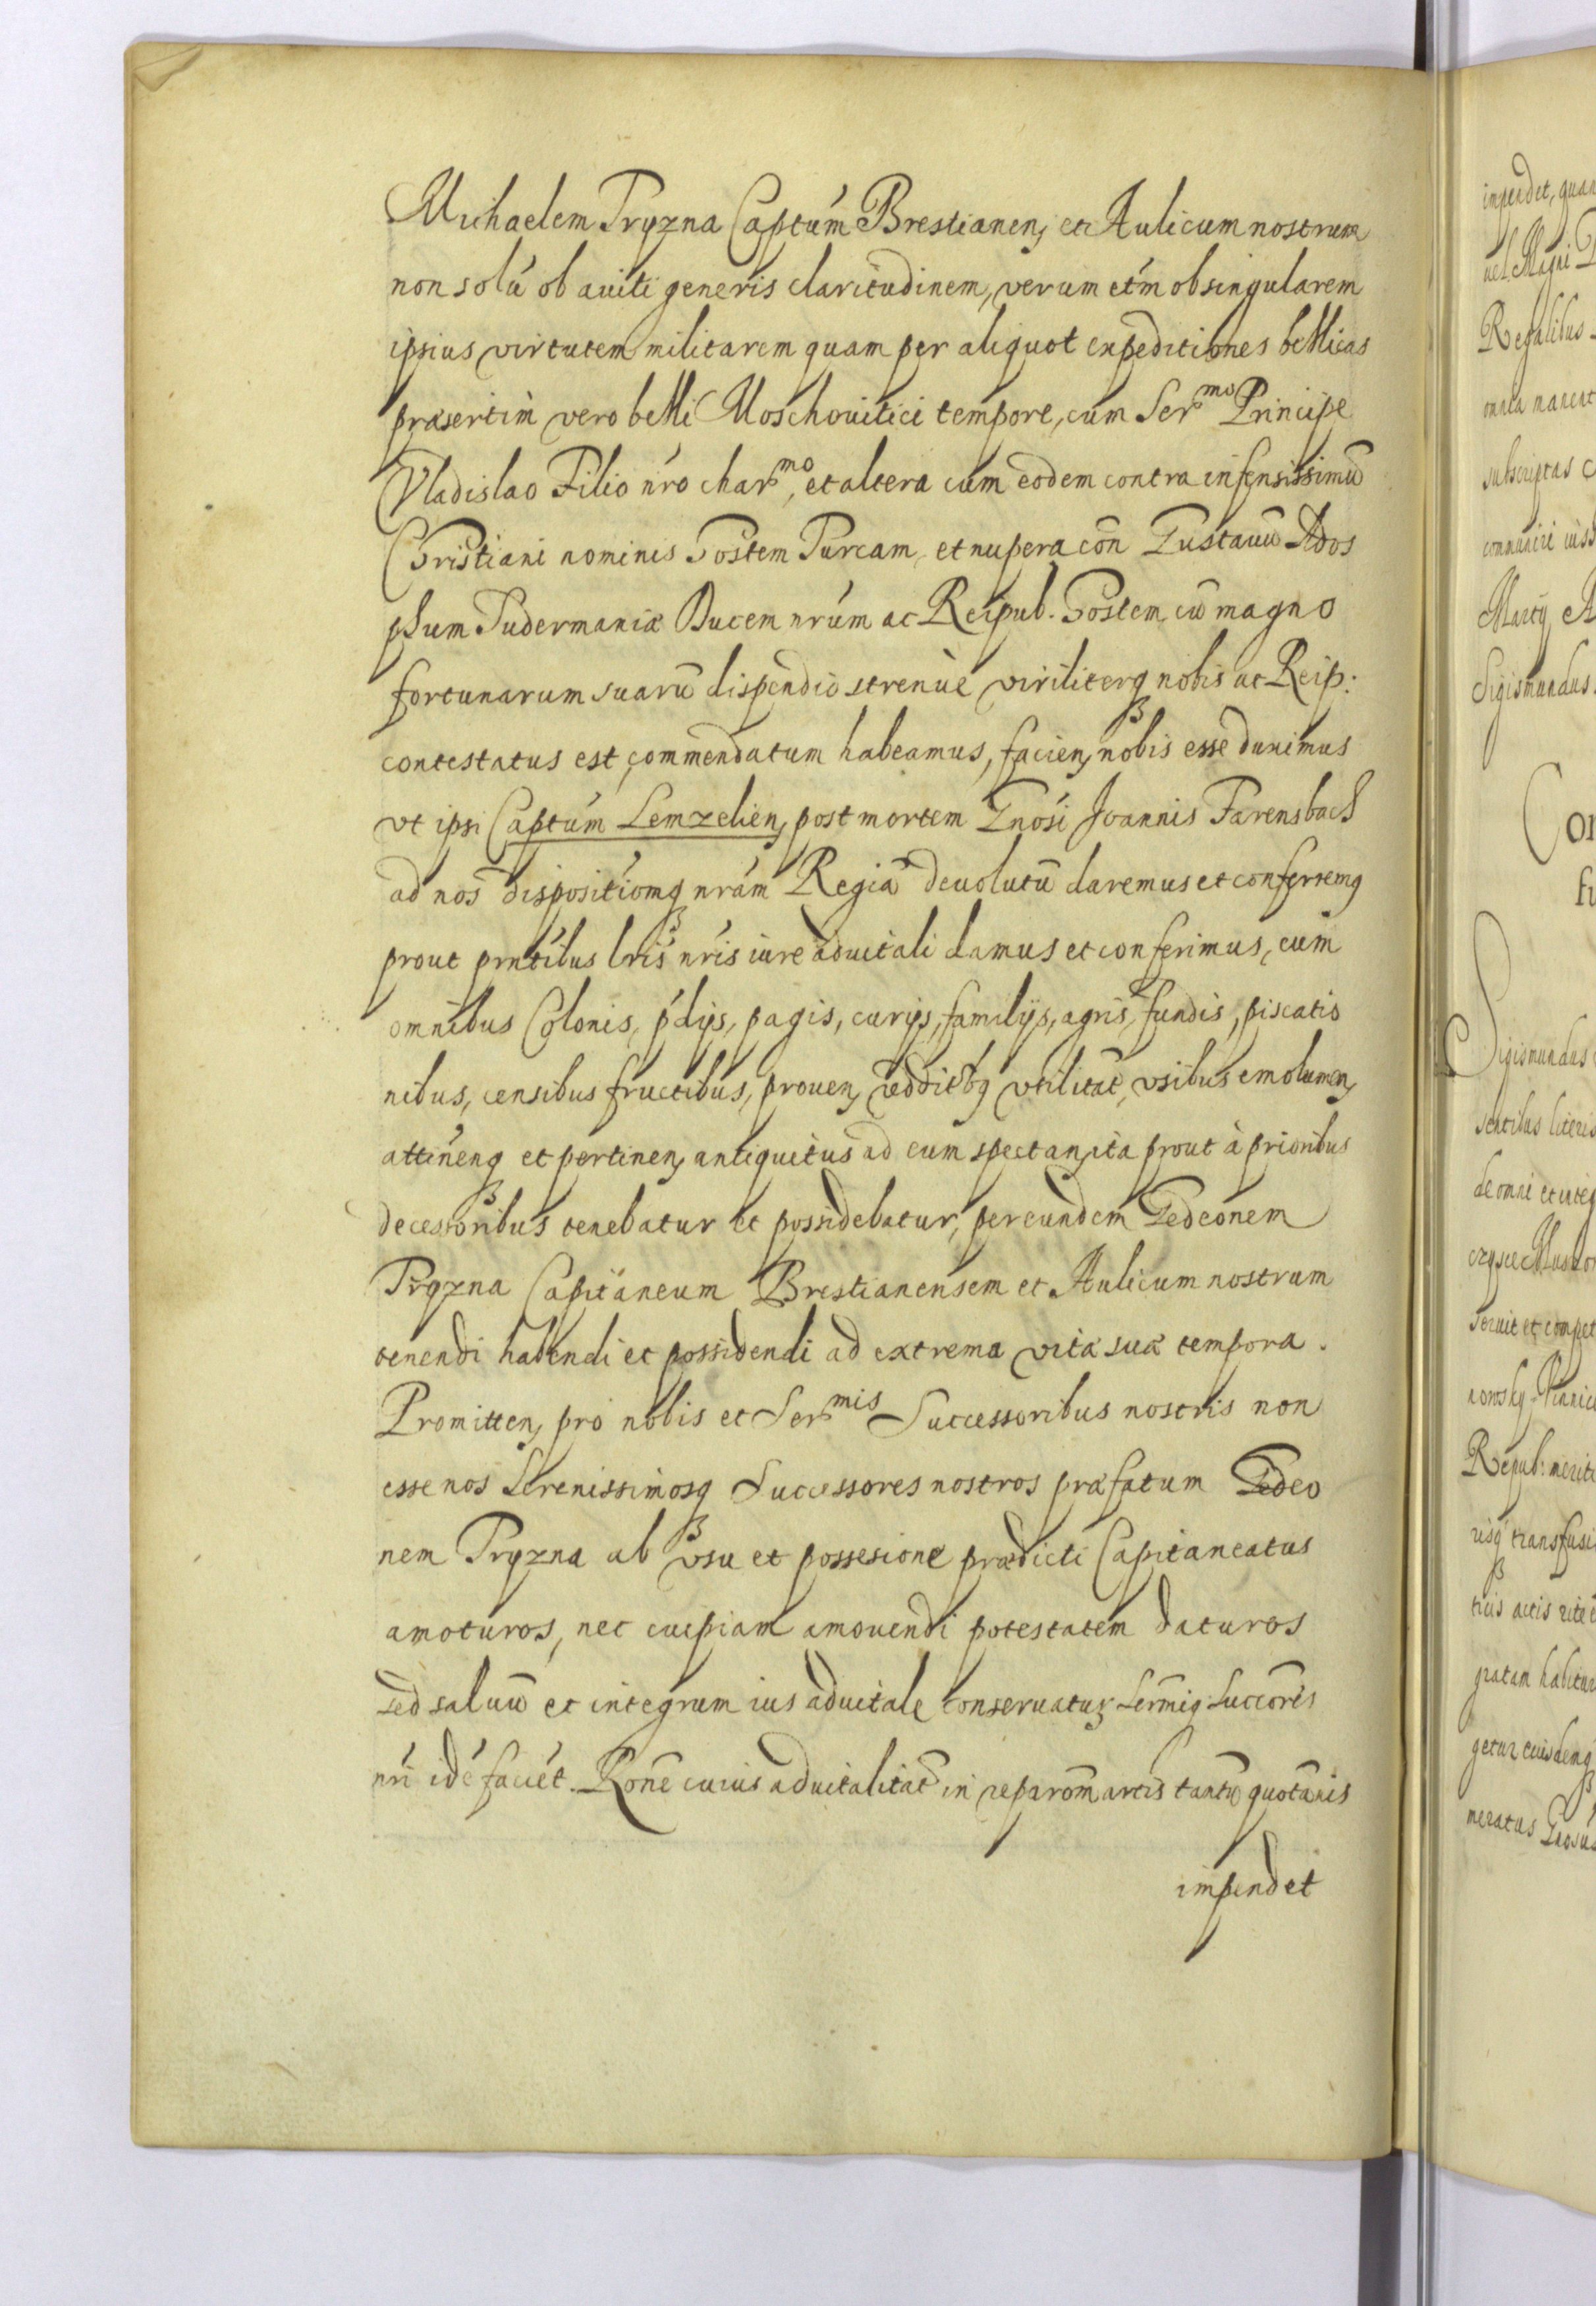 Michaelem Tryzna Captúm Brestianen, et Aulicum nostrum
non solú ob auiti generis claritudinem, verum etḿ ob singularem
ipsius virtutem militarem quam per aliquot expeditiones bellicas
præsertim vero belli Moschouitici tempore, cum Ser^mo Principe
Vladislao Filio nŕo char^mo, et altera cum eodem contra infensissimū
Christiani nominis Hostem Turcam, et nupera con̄ Gustauū Adol
phum Sudermaniæ Ducem nrúm ac Reipub. Hostem, cū magno
fortunarum suarū dispendio strenuè viriliterq nobis ac Reip:
contestatus est, commendatum habeamus, facien, nobis esse duximus
vt ipsi Captúm Lemzelien, post mortem Gnośi Joannis Farensbach
ad nos dispositiomq nrám Regiā deuolutū daremus et conferremq
prout pnt́ibus lrís nrís iure aduitali damus et conferimus, cum
omnibus Colonis, ṕdijs, pagis, curijs, familijs, agris, fundis, piscatio
nibus, censibus fructibus, prouen, redditbq vtilitat̄, vsibus emolumen,
attineńq et pertinen, antiquitus ad eum spectan, ita prout à prioribus
decessoribus tenebatur et possidebatur, per eundem Gedeonem
Tryzna Capitaneum Brestianensem et Aulicum nostrum
tenendi habendi et possidendi ad extrema vitæ suæ tempora.
Promitten, pro nobis et Ser^mis Successoribus nostris non
esse nos Serenissimosq Successores nostros præfatum Gedeo
nem Tryzna ab vsu et possesione prædicti Capitaneatus
amoturos, nec cuipiam amouendi potestatem daturos
sed saluū et integrum ius aduitale conseruatur, Serm̄iq Succor̄es
nrí idé faciét. Ron̄e cuius aduitalitat̄ in reparom̄ arcis tantū quotānis
impendet